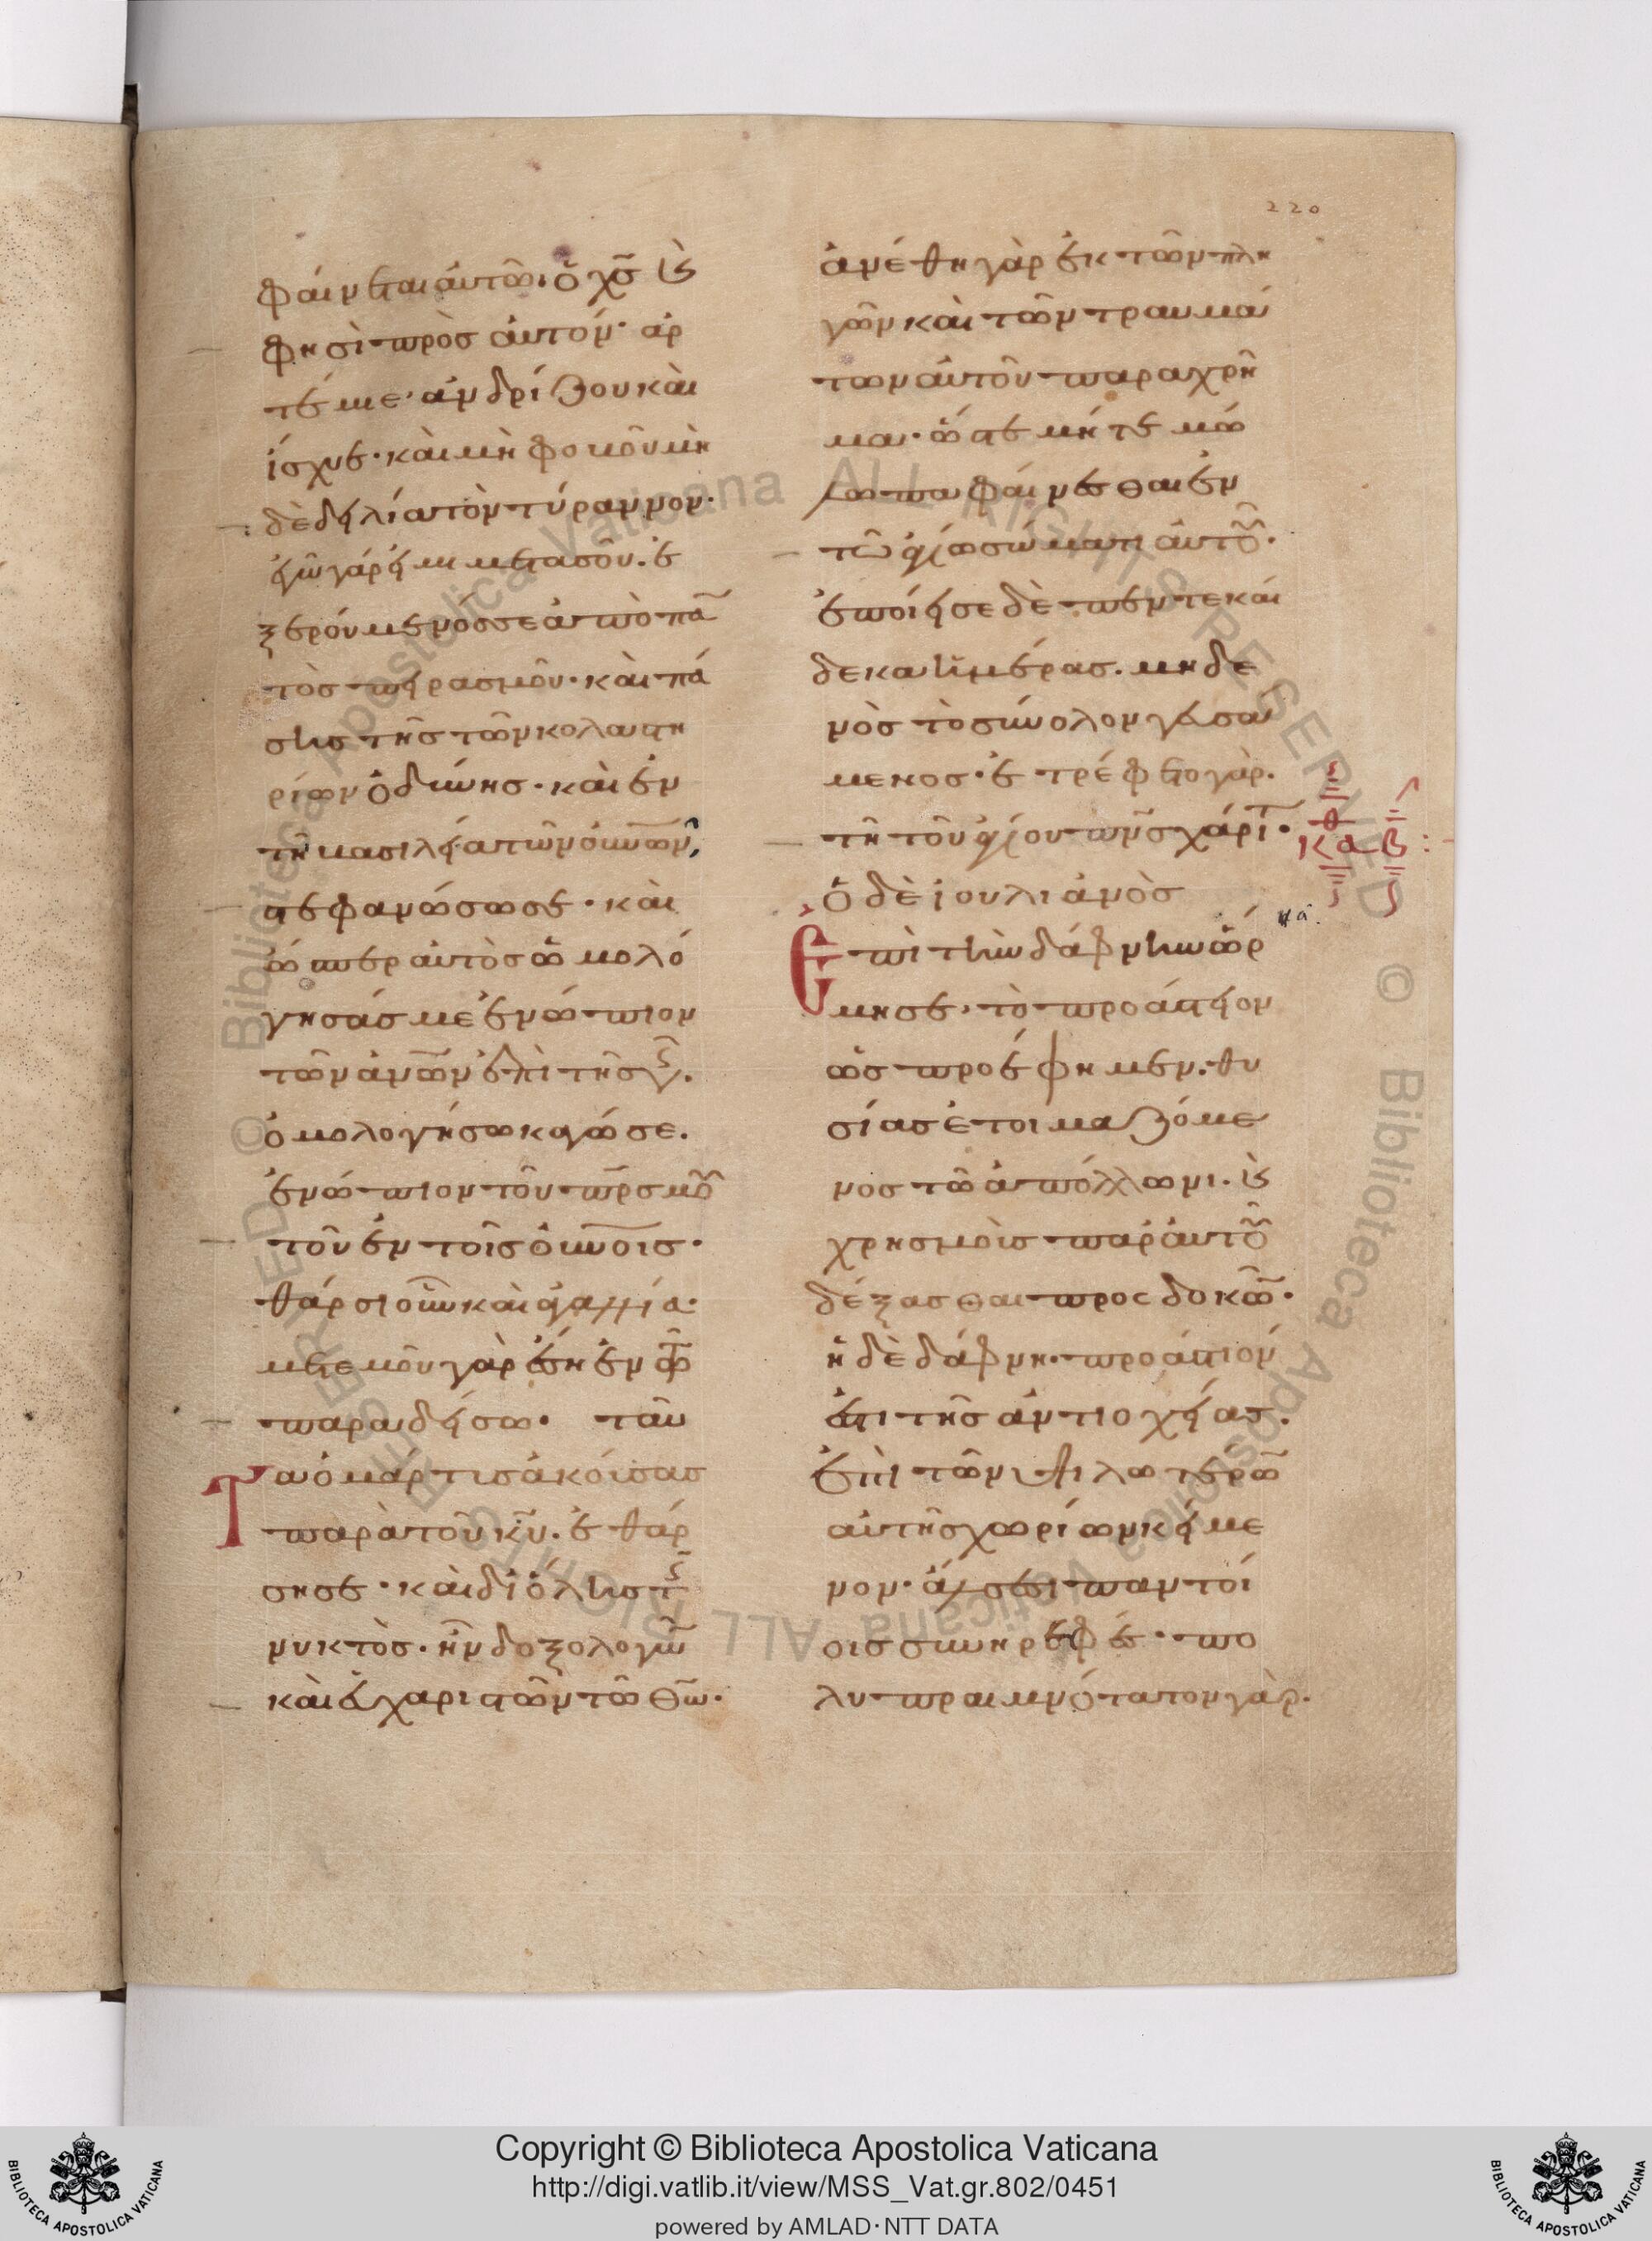 220
φαίνεται αὐτῶι ὁ χ̅ς̅ κ(αὶ)
φησὶ πρὸς αὐτόν· ἀρ
τέμιε· ἀνδρίζου καὶ
ἴσχυε· καὶ μὴ φοβοῦ μὴ
δὲ δειλία τὸν τύραννον·
ἐγὼ γάρ εἰμι μετὰ σοῦ. ἐ
ξερούμενός σε ἀπὸ πα(ν)
τὸς πειρασμοῦ· καὶ πά
σης τῆς τῶν κολαστη
ρίων ὀδύνης· καὶ ἐν
τῆ βασιλεία τῶν οὐ(ρα)νῶν,
στεφανώσω σε· καὶ
ὥσπερ αὐτὸς ὡμολό
γησάς με ἐνώπιον
τῶν ἀν(θρώπ)ων ἐπὶ τῆς γῆς.
ὁμολογήσω κἀγώ σε.
ἐνώπιον τοῦ π̅ρ̅ς̅ μου
τοῦ ἐν τοῖς οὐ(ρα)νοῖς·
θάρσι οὖν καὶ ἀγαλλία·
μετ ἐμοῦ γὰρ ἔση ἐν τῶ
παραδείσω· ταῦ
Τα ὁ μάρτις ἀκούσας
παρὰ τοῦ κ̅υ̅. ἐθάρ
σησε· καὶ δι ὅλης τῆς
νυκτὸς· ἦν δοξολογῶν
καὶ εὐχαριστῶν τῶ θ̅ω̅·
ἀνέθη γὰρ ἐκ τῶν πλη
γῶν καὶ τῶν τραυμά
των αὐτοῦ παραχρῆ
μα· ὥστε μήτε μώ
λωπα φαίνεσθαι ἐν
τῶ ἁγίω σώματι αὐτοῦ·
ἐποίησε δὲ πέντε καὶ
δεκα ἡμέρας. μηδε
νὸς τὸ σύνολον γευσά
μενος· ἐτρέφετο γὰρ.
τῆ τοῦ ἁγίου π̅ν̅ς̅ χάριτ(ι)·
Ὁ δὲ ἰουλιανὸς
Ἐπὶ τὴν δάφνην ὥρ
μησε· τὸ προάστειον
ὡς προέφημεν· θυ
σίας ἑτοιμαζόμε
νος τῶ ἀπόλλωνι. κ(αὶ)
χρησμοὺς παρ αὐτοῦ
δέξασθαι προσδοκῶν·
ἡ δὲ δάφνη· προάστιόν
ἐστι τῆς ἀντιοχείας.
ἐπὶ τῶν ὑψιλωτέρων
αὐτῆς χωρίων κείμε
νον· ἄλσεσι παντοί
οις συνηρεφές· πο
λυπραιμνότατον γὰρ.
Copyright © Biblioteca Apostolica Vaticana
http://digi.vatlib.it/view/MSS_Vat.gr.802/0451
powered by AMLAD·NTT DATA